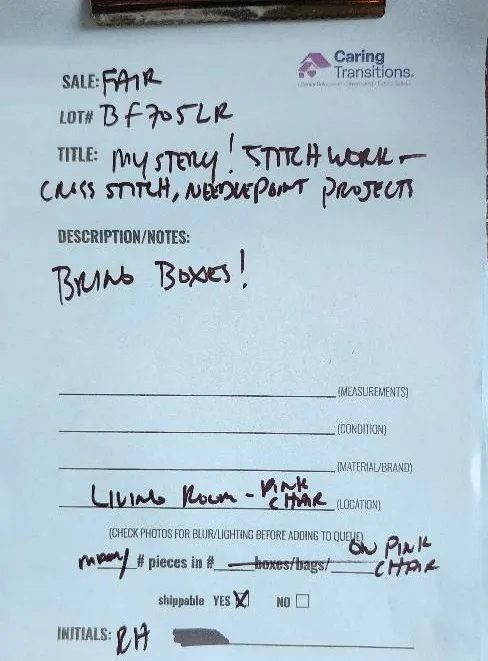 Caring
Transitions.
SALE: FAIR
LOT# BF705LR
TITLE: MYSTERY! STITCHWORK -
CROSS STITCH, NEEDLEPOINT PROJECTS
DESCRIPTION/NOTES:
BRING BOXES!
(MEASUREMENTS)
(CONDITION)
(MATERIAL/BRAND)
LIVING ROOM - PINK CHAIR (LOCATION)
(CHECK PHOTOS FOR BLUR/LIGHTING BEFORE ADDING TO QUEUE)
many # pieces in # boxes/bags/ ON PINK CHAIR
shippable YES X NO
INITIALS: RH